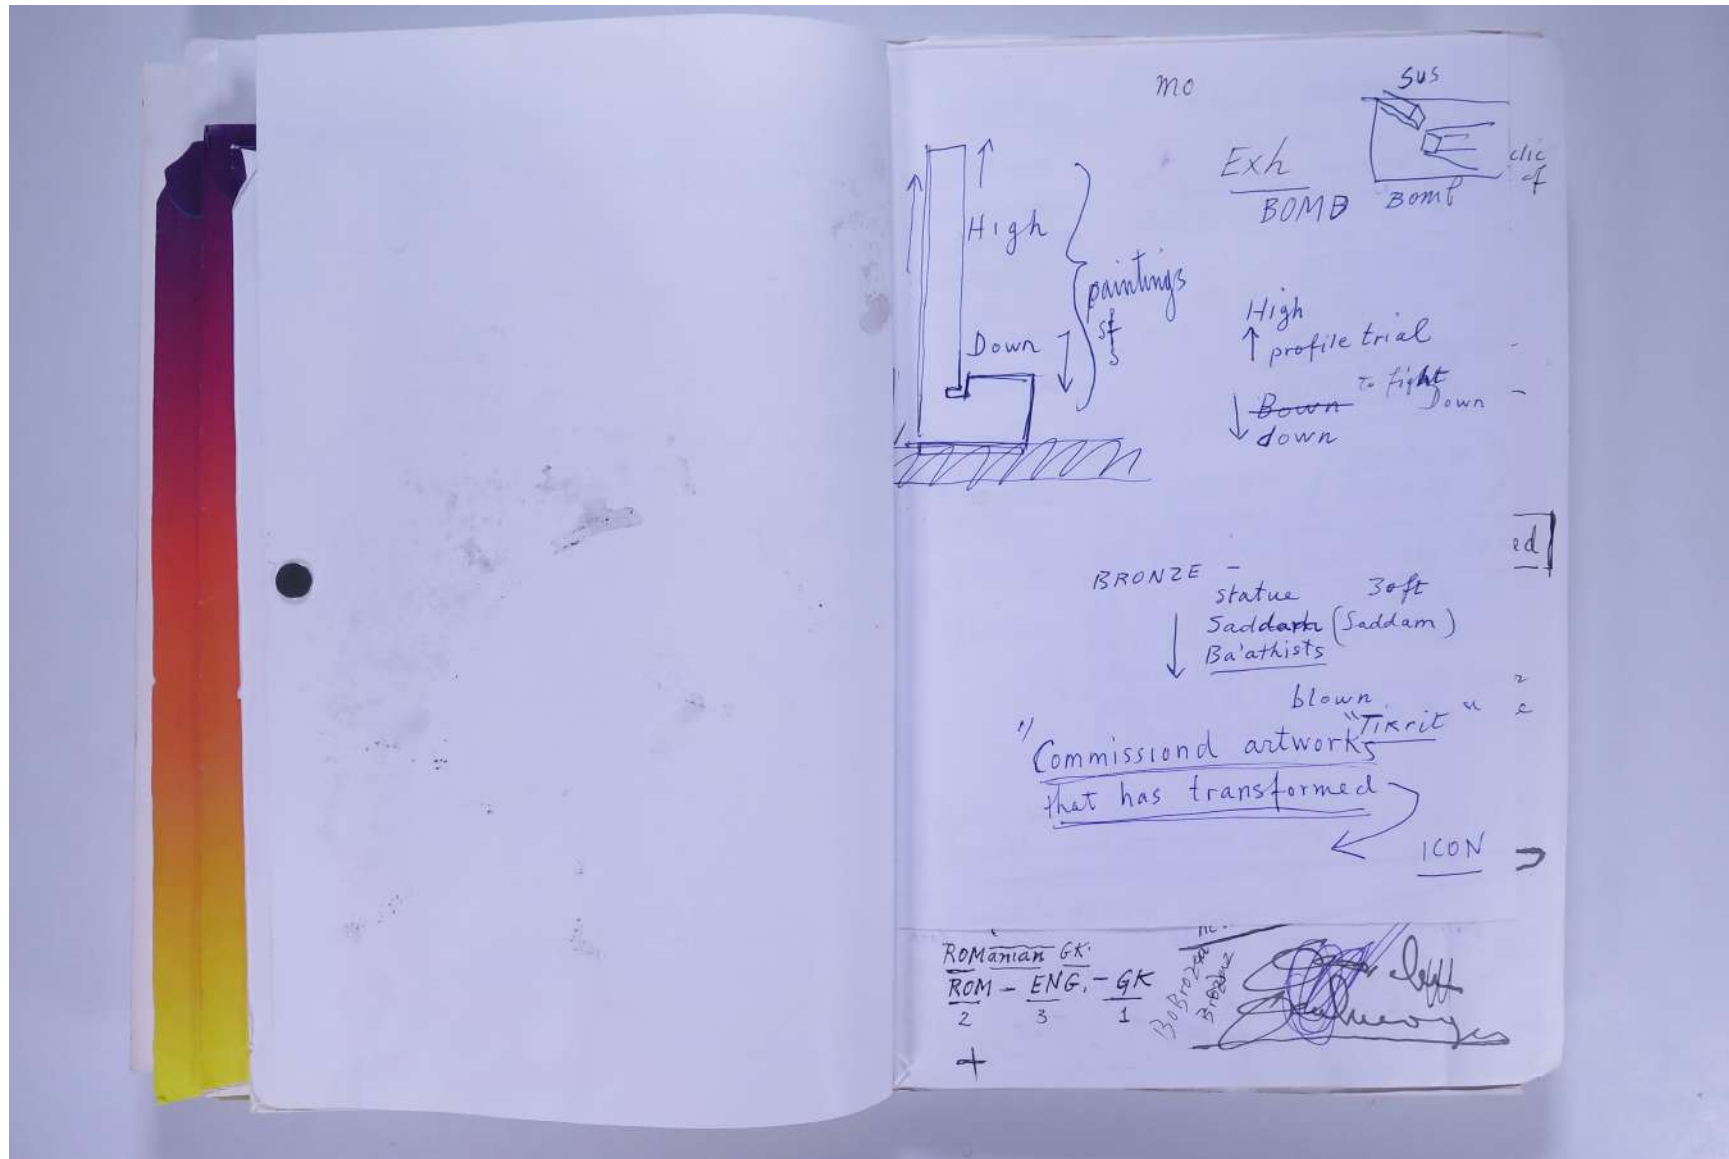 mo
sus
Exh
BOMB
Bomb
clic
of
High
paintings
Down
High
profile trial
To fight
Down
Bown
down
ed
BRONZE -
statue 30ft
(Saddam)
Ba'athists
blown
"Tikrit"
1) Commissiond artworks
that has transformed
ICON
ROManian GK.
ROM - ENG. - GK
2 3 1